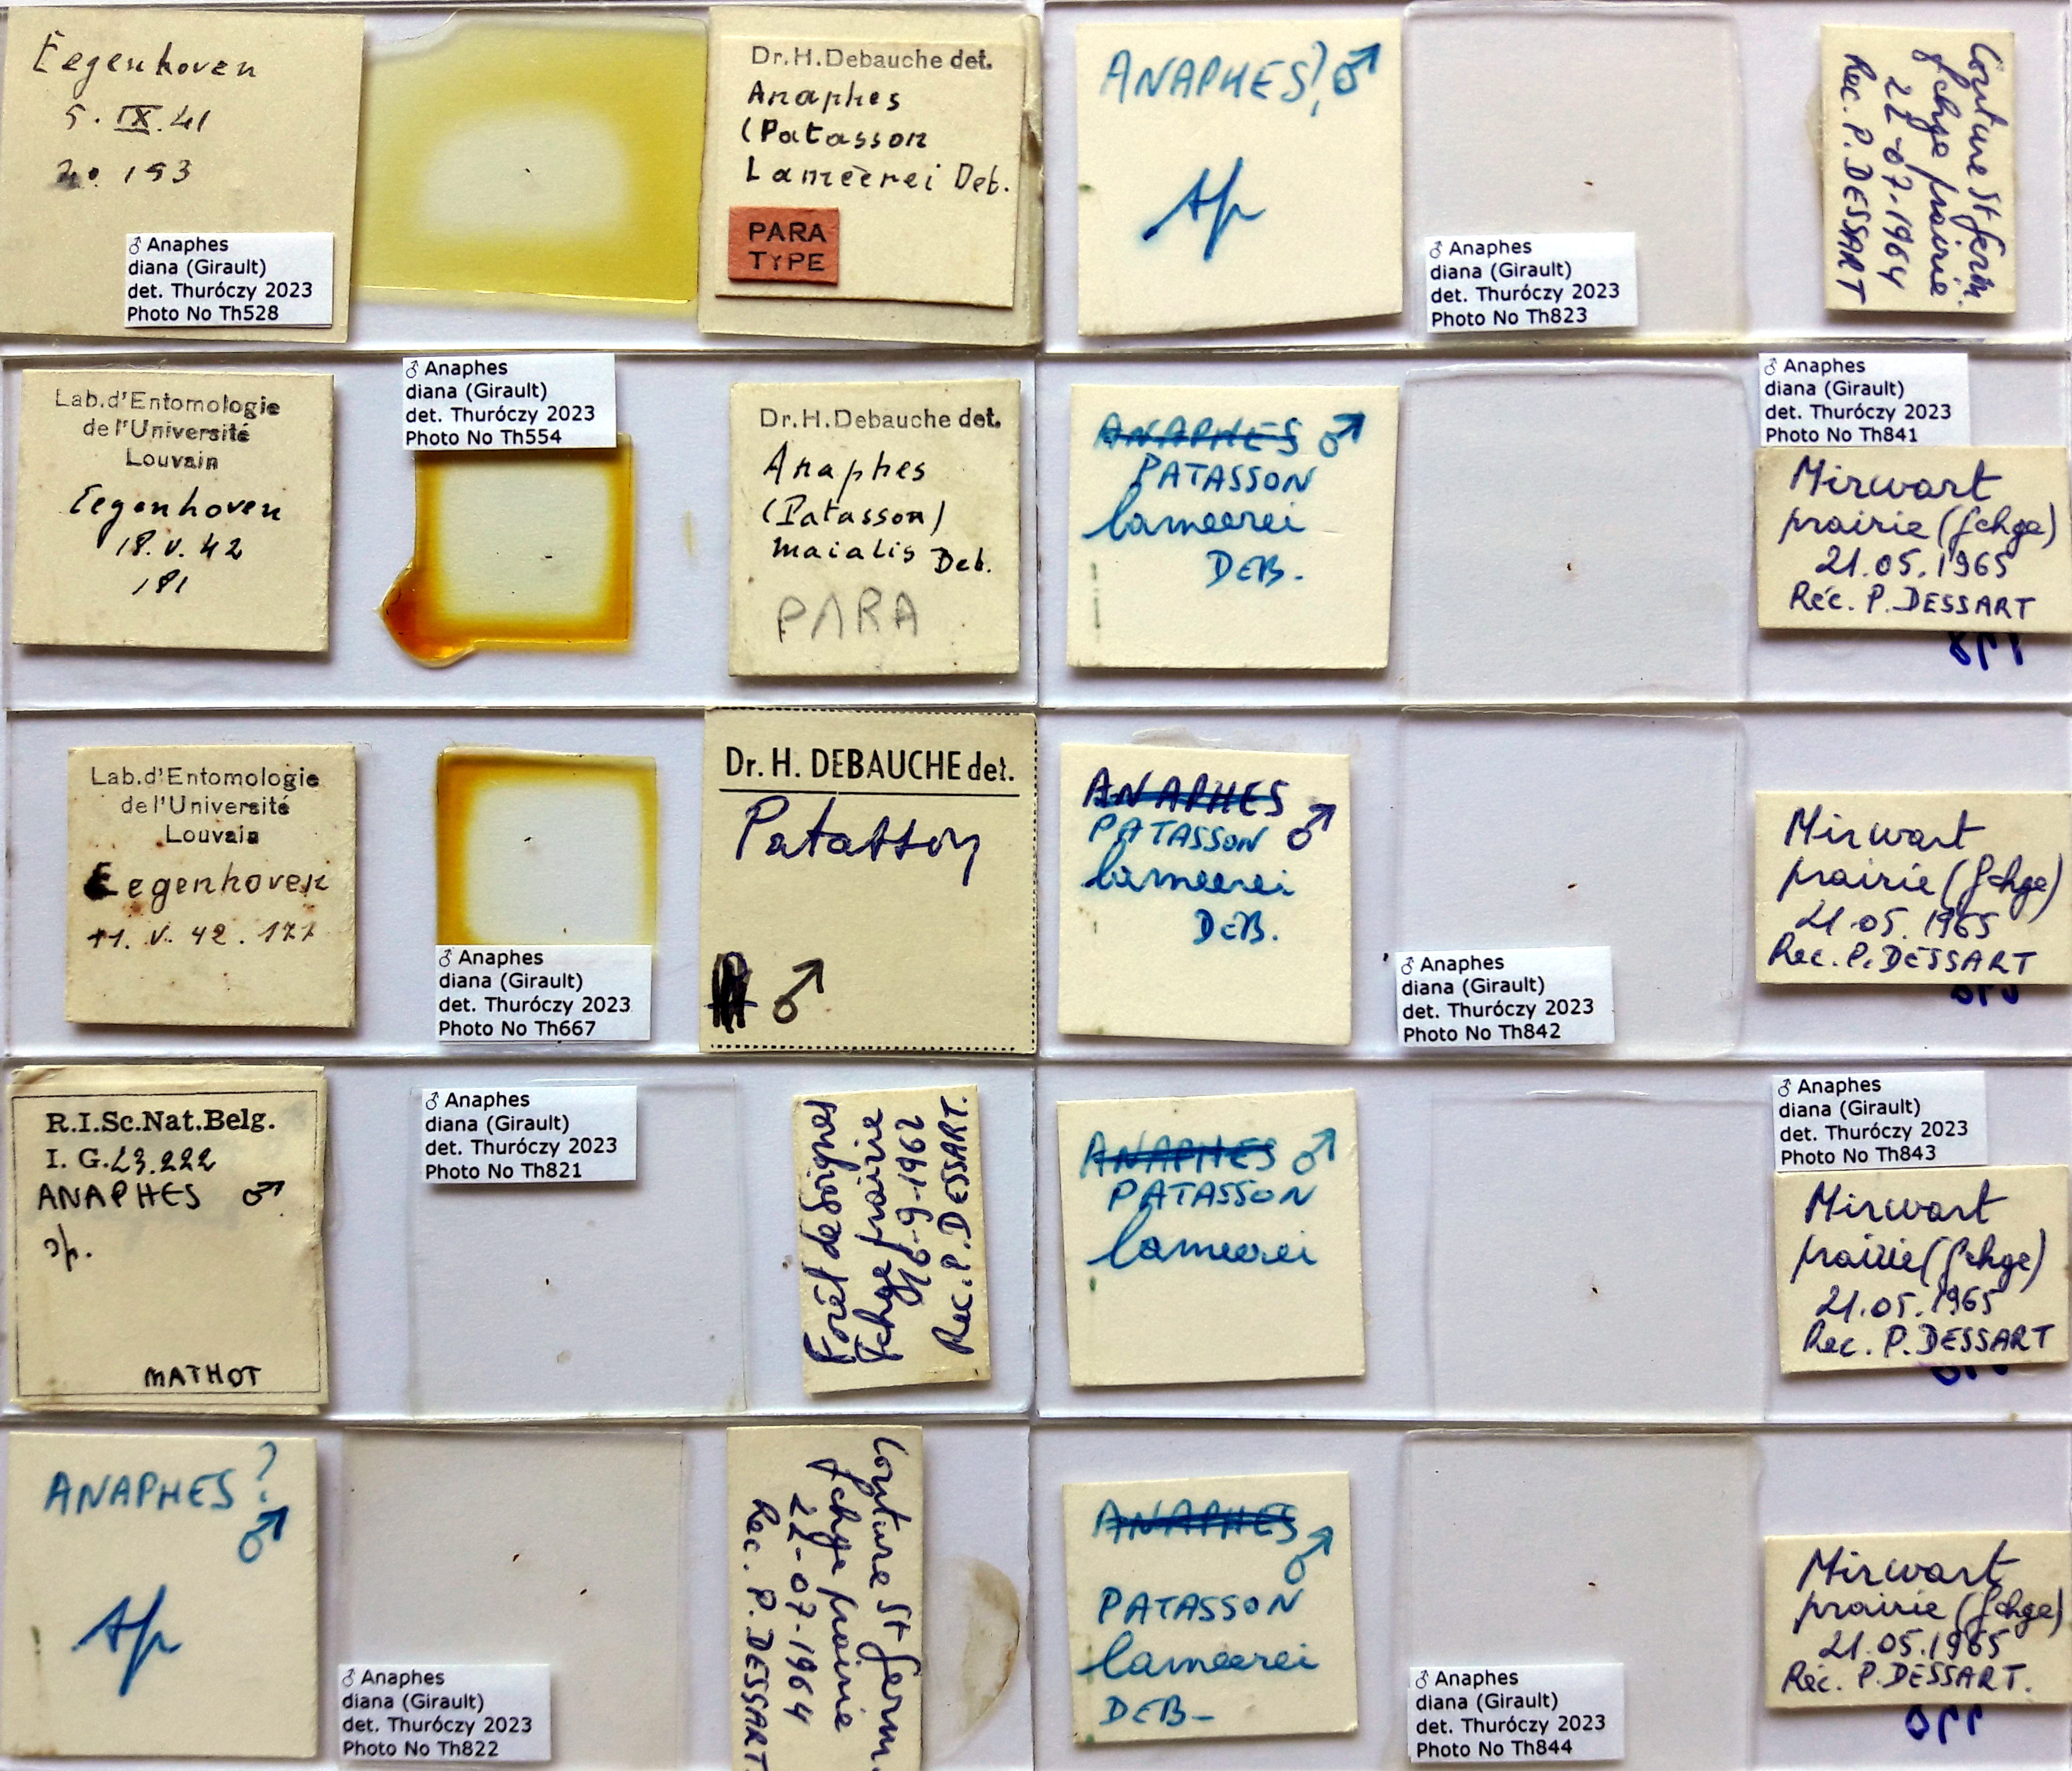 Eegenhoven
5. IX. 41
20. 193
♂ Anaphes
diana (Girault)
det. Thuróczy 2023
Photo No Th528
Dr.H.Debauche det.
Anaphes
(Patasson
Lameèrei Deb.
PARA
TYPE
ANAPHES? ♂
sp
♂ Anaphes
diana (Girault)
det. Thuróczy 2023
Photo No Th823
Couture St Germ.
fchge prairie
22-07-1964
Rec. P. DESSART
Lab.d'Entomologie
de l'Université
Louvain
Eegenhoven
18. V. 42
181
♂ Anaphes
diana (Girault)
det. Thuróczy 2023
Photo No Th554
Dr.H.Debauche det.
Anaphes
(Patasson)
maialis Deb.
PARA
ANAPHES ♂
PATASSON
lameerei
DEB.
♂ Anaphes
diana (Girault)
det. Thuróczy 2023
Photo No Th841
Mirwart
prairie (fchge)
21.05.1965
Réc. P. DESSART
Lab.d'Entomologie
de l'Université
Louvain
Eegenhoven
11. V. 42. 171
♂ Anaphes
diana (Girault)
det. Thuróczy 2023
Photo No Th667
Dr. H. DEBAUCHE det.
Patasson
♂
ANAPHES
PATASSON ♂
lameerei
DEB.
♂ Anaphes
diana (Girault)
det. Thuróczy 2023
Photo No Th842
Mirwart
prairie (fchge)
21.05.1965
Rec. P. DESSART
R.I.Sc.Nat.Belg.
I. G. 23.222
ANAPHES ♂
sp.
MATHOT
♂ Anaphes
diana (Girault)
det. Thuróczy 2023
Photo No Th821
Forêt de Soignes
Fchge prairie
16-9-1962
Rec. P. DESSART.
ANAPHES ♂
PATASSON
lameerei
♂ Anaphes
diana (Girault)
det. Thuróczy 2023
Photo No Th843
Mirwart
prairie (fchge)
21.05.1965
Rec. P. DESSART
ANAPHES ?
♂
sp
♂ Anaphes
diana (Girault)
det. Thuróczy 2023
Photo No Th822
Couture St Germ.
fchge prairie
22-07-1964
Rec. P. DESSART
ANAPHES
♂
PATASSON
lameerei
DEB-
♂ Anaphes
diana (Girault)
det. Thuróczy 2023
Photo No Th844
Mirwart
prairie (fchge)
21.05.1965
Réc. P. DESSART.